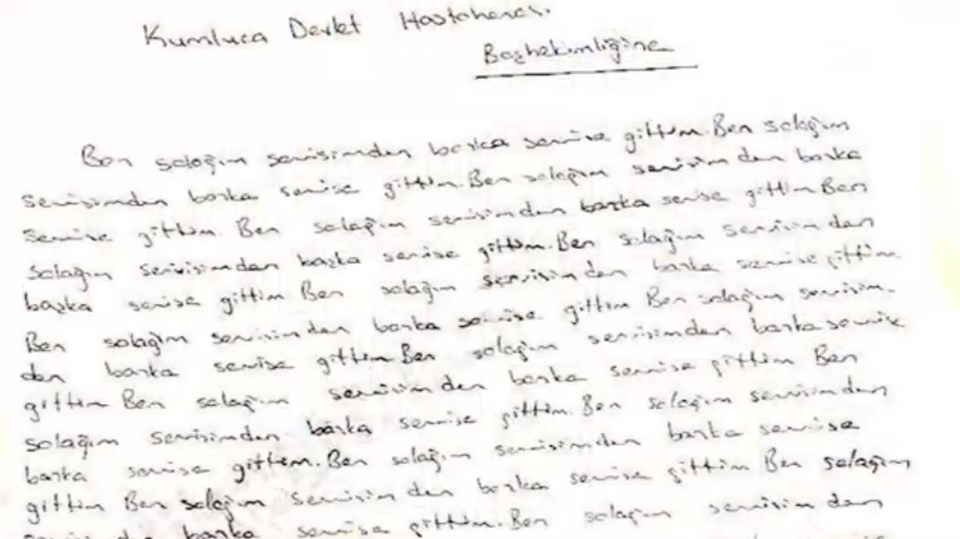 Kumluca Devlet Hastahanesi
Başhekimliğine
Ben salağım servisimden başka servise gittim. Ben salağım
servisimden başka servise gittim. Ben salağım servisimden başka
servise gittim. Ben salağım servisimden başka servise gittim Ben
salağım servisimden başka servise gittim. Ben salağım servisimden
başka servise gittim Ben salağım servisimden başka servise gittim.
Ben salağım servisimden başka servise gittim Ben salağım servisim-
den başka servise gittim Ben salağım servisimden başka servise
gittim Ben salağım servisimden başka servise gittim Ben
salağım servisimden başka servise gittim. Ben salağım servisimden
başka servise gittim. Ben salağım servisimden başka servise
gittim Ben salağım servisimden başka servise gittim Ben salağım
başka servise gittim. Ben salağım servisimden